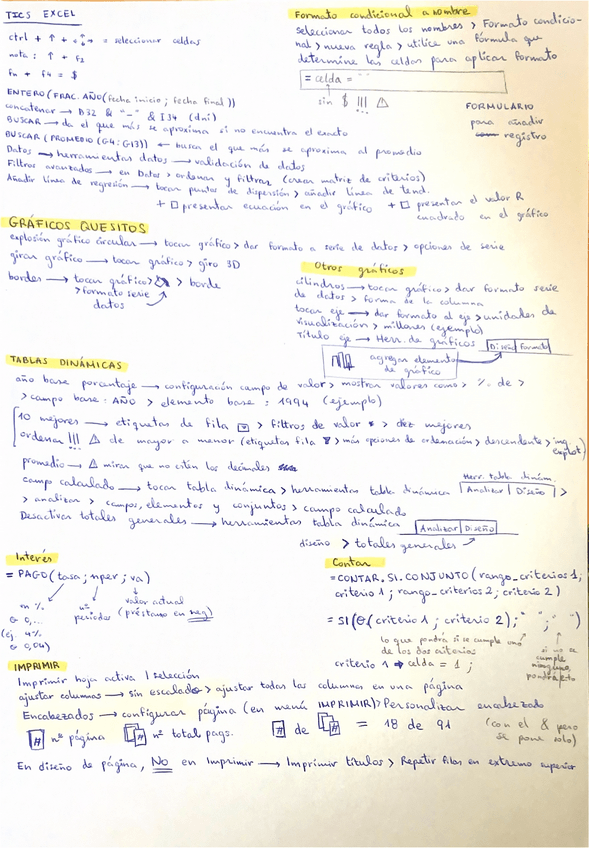 TICS EXCEL
ctrl + ↑ + = seleccionar celdas
nota: ↑ + F2
fn + F4 = $
ENTERO(FRAC.AÑO(fecha inicio; fecha final))
concatenar → B32 & "_" & I34 (dni)
BUSCAR → da el que más se aproxima si no encuentra el exacto
BUSCAR (PROMEDIO(G4:G13)) ← busca el que más se aproxima al promedio
Datos → herramientas datos → validación de datos
Filtros avanzados → en Datos > ordenar y filtrar (crear matriz de criterios)
Añadir línea de regresión → tocar puntos de dispersión > añadir línea de tend.
+ □ presentar ecuación en el gráfico + □ presentar el valor R
cuadrado en el gráfico
Formato condicional a nombre
seleccionar todos los nombres > Formato condicio-
nal > nueva regla > utilice una fórmula que
determine las celdas para aplicar formato
= celda = " "
sin $ !!! ⚠
FORMULARIO
para añadir
registro
GRÁFICOS QUESITOS
explosión gráfico circular → tocar gráfico > dar formato a serie de datos > opciones de serie
girar gráfico → tocar gráfico > giro 3D
bordes → tocar gráfico > > borde
> formato serie
datos
Otros gráficos
cilindros → tocar gráfico > dar formato serie
de datos > forma de la columna
tocar eje → dar formato al eje > unidades de
visualización > millones (ejemplo)
Título eje → Herr. de gráficos Diseño Formato
agregar elemento
de gráfico
TABLAS DINÁMICAS
año base porcentaje → configuración campo de valor > mostrar valores como > % de >
> campo base: AÑO > elemento base: 1994 (ejemplo)
10 mejores → etiquetas de fila > filtros de valor > diez mejores
ordenar !!! ⚠ de mayor a menor (etiquetas fila > más opciones de ordenación > descendente >
promedio → ⚠ mirar que no estén los decimales
campo calculado → tocar tabla dinámica > herramientas tabla dinámica
Herr. tabla dinám.
Analizar Diseño >
> analizar > campos, elementos y conjuntos > campo calculado
Desactivar totales generales → herramientas tabla dinámica Analizar Diseño
diseño > totales generales
Interés
= PAGO(tasa; nper; va)
en %
o 0,...
(ej. 4%
o 0,04)
nº
periodos
valor actual
(préstamo en neg)
Contar
=CONTAR.SI.CONJUNTO(rango_criterios1;
criterio 1; rango_criterios 2; criterio 2)
= SI(O(criterio 1; criterio 2);" ";" ")
lo que pondrá si se cumple uno
de los dos criterios
si no se
cumple
ninguno,
pondrá esto
criterio 1 → celda = 1;
IMPRIMIR
Imprimir hoja activa / selección
ajustar columnas → sin escalado > ajustar todas las columnas en una página
Encabezados → configurar página (en menú IMPRIMIR) > Personalizar encabezado
# nº página # nº total pags. # de # = 18 de 91
(con el & pero
se pone solo)
En diseño de página, No en Imprimir → Imprimir títulos > Repetir filas en extremo superior